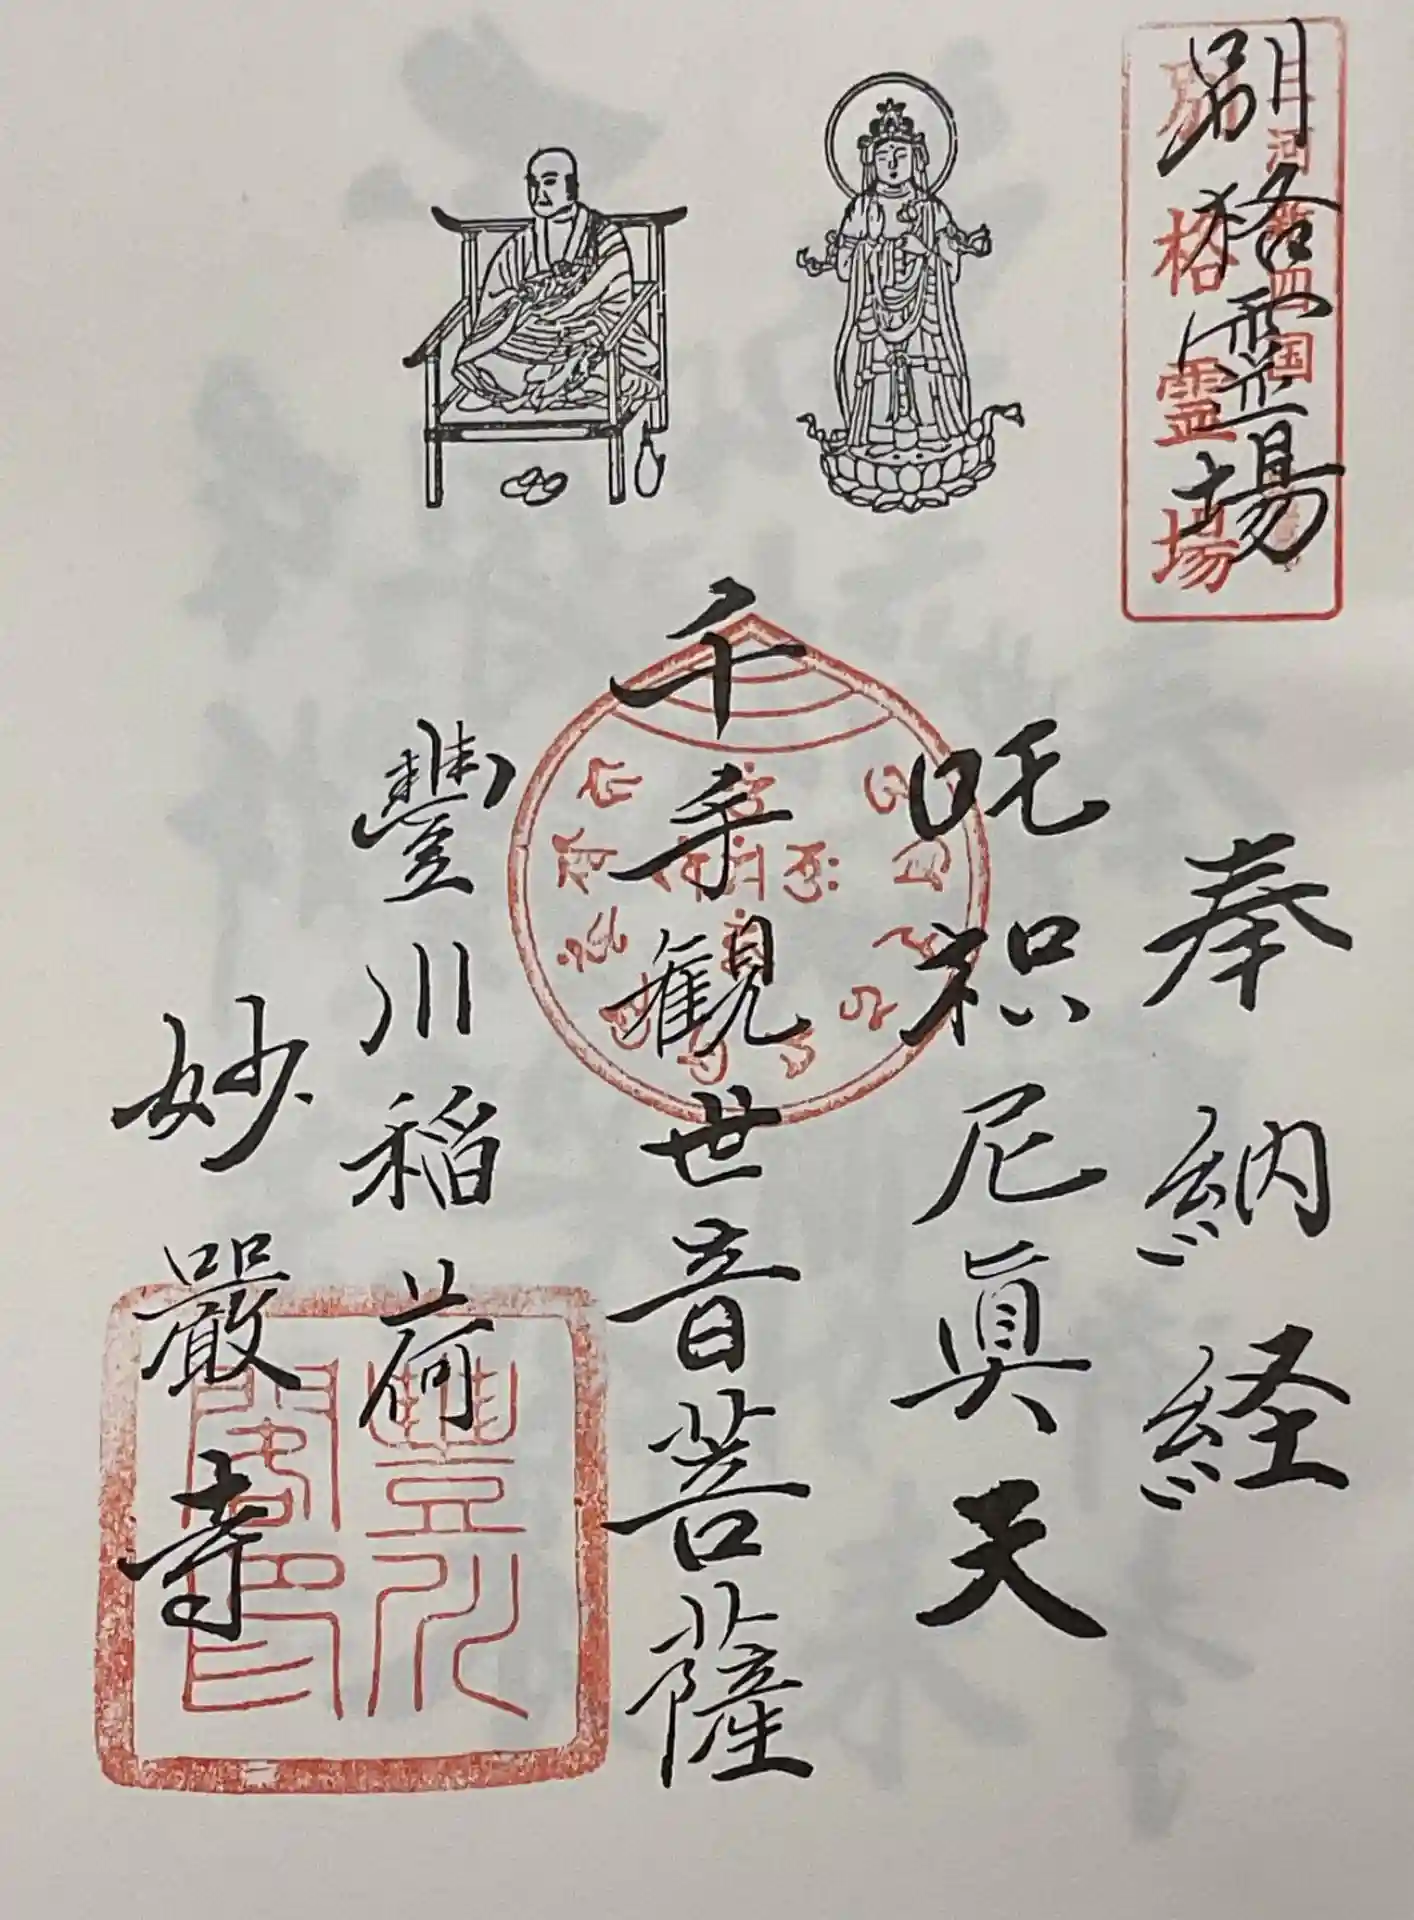 別格霊場
三河新四国
別格霊場
奉納経
吒枳尼眞天
千手観世音菩薩
豐川稲荷
妙嚴寺
豐川閣印